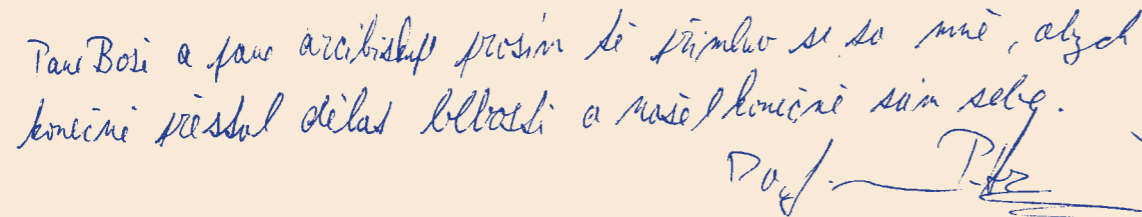 Pane Bože a pane arcibiskupe prosím tě přimluv se za mně, abych
konečně přestal dělat blbosti a našel konečně sám sebe.